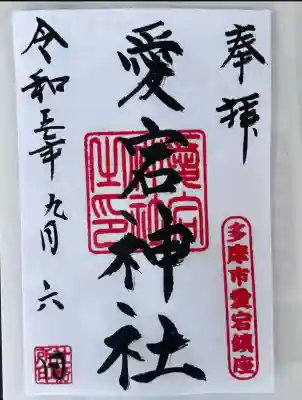 奉拝
多摩市愛宕鎮座
愛宕神社
令和三年九月六日